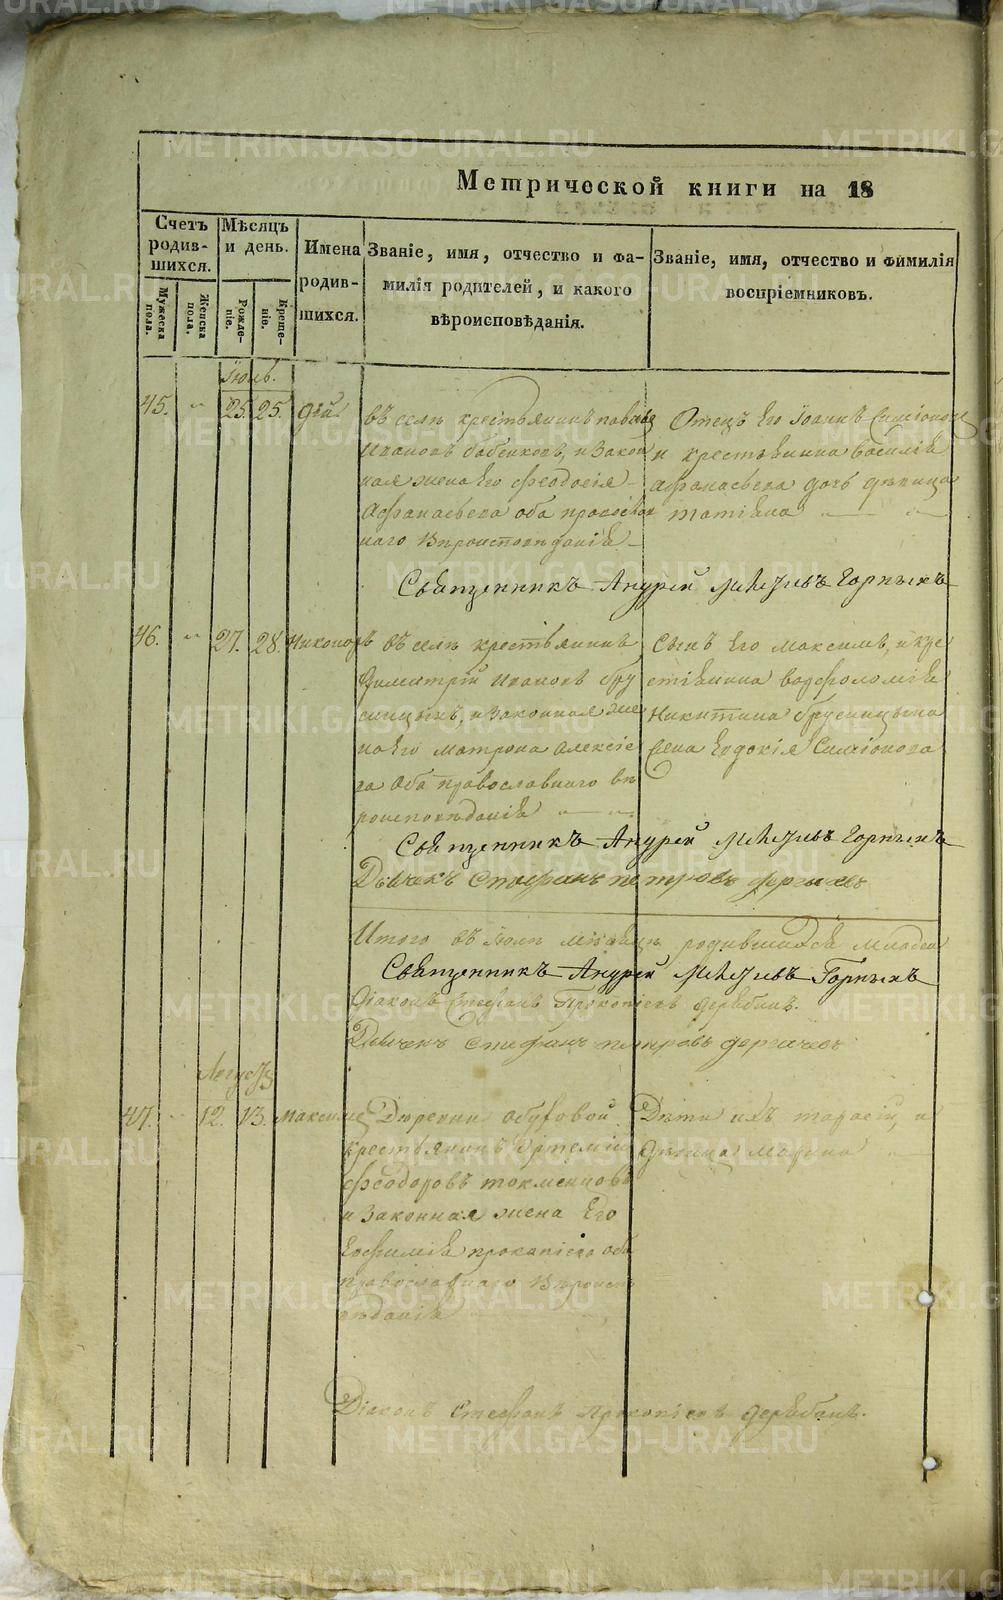 Метрической книги на 18
Счетъ родив- шихся.
Мѣсяцъ и день.
Имена родив- шихся.
Званіе, имя, отчество и фа- милія родителей, и какого вѣроисповѣданія.
Званіе, имя, отчество и фимилія воспріемниковъ.
Мужеска пола.
Женска пола.
Рожде- ніе.
Креще- ніе.
Іюль.
45. 25. 25.
въ селѣ крестьянинъ
Ивановъ и закон
ная жена его Феодосія
Афанасьева оба православ
наго вѣроисповѣданія
Отецъ его Іоаннъ Симіоновъ
и крестьянина Василія
Афанасьева дочь дѣвица
Татіана
Священникъ Андрей Горныхъ
46. 27. 28. Никоноръ
въ селѣ крестьянинъ
Димитрій Ивановъ бру
сницынъ, и законная же
на его Матрона Алексіе
ва оба православнаго вѣ
роисповѣданія
Сынъ его Максимъ, и кре
стіянина Варфоломія
Никитина брусницына
жена Евдокія Симіонова
Священникъ Андрей Горныхъ
Дьячекъ Стефанъ Петровъ
Итого въ Іюлѣ мѣсяцѣ родившихся младен
Священникъ Андрей Горныхъ
Діаконъ Стефанъ Прокопіевъ
Дьячекъ Стефанъ Петровъ
Августъ
47. 12. 13. Максимъ
Деревни
крестьянинъ Артемій
Феодоровъ токменцовъ
и законная жена его
Евфимія Прокопіева оба
православнаго вѣроиспо
вѣданія
Дѣти ихъ Тарасій, и
дѣвица Марина
Діаконъ Стефанъ Прокопіевъ
METRIKI.GASO-URAL.RU